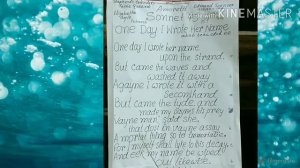 Made with
KINEMASTER
Amoretti
Edmund Spenser
Sonnet
One Day I Wrote Her Name
One day I wrote her name
upon the strand,
But came the waves and
washed it away
Agayne I wrote it with a
Second hand
But came the tyde, and
made my paynes his prey
Vayne man, said she,
that dost in vayne assay
A mortal thing so to immortalize,
For myself shall lyke to this decay,
And eek my name be wiped
out likewise.